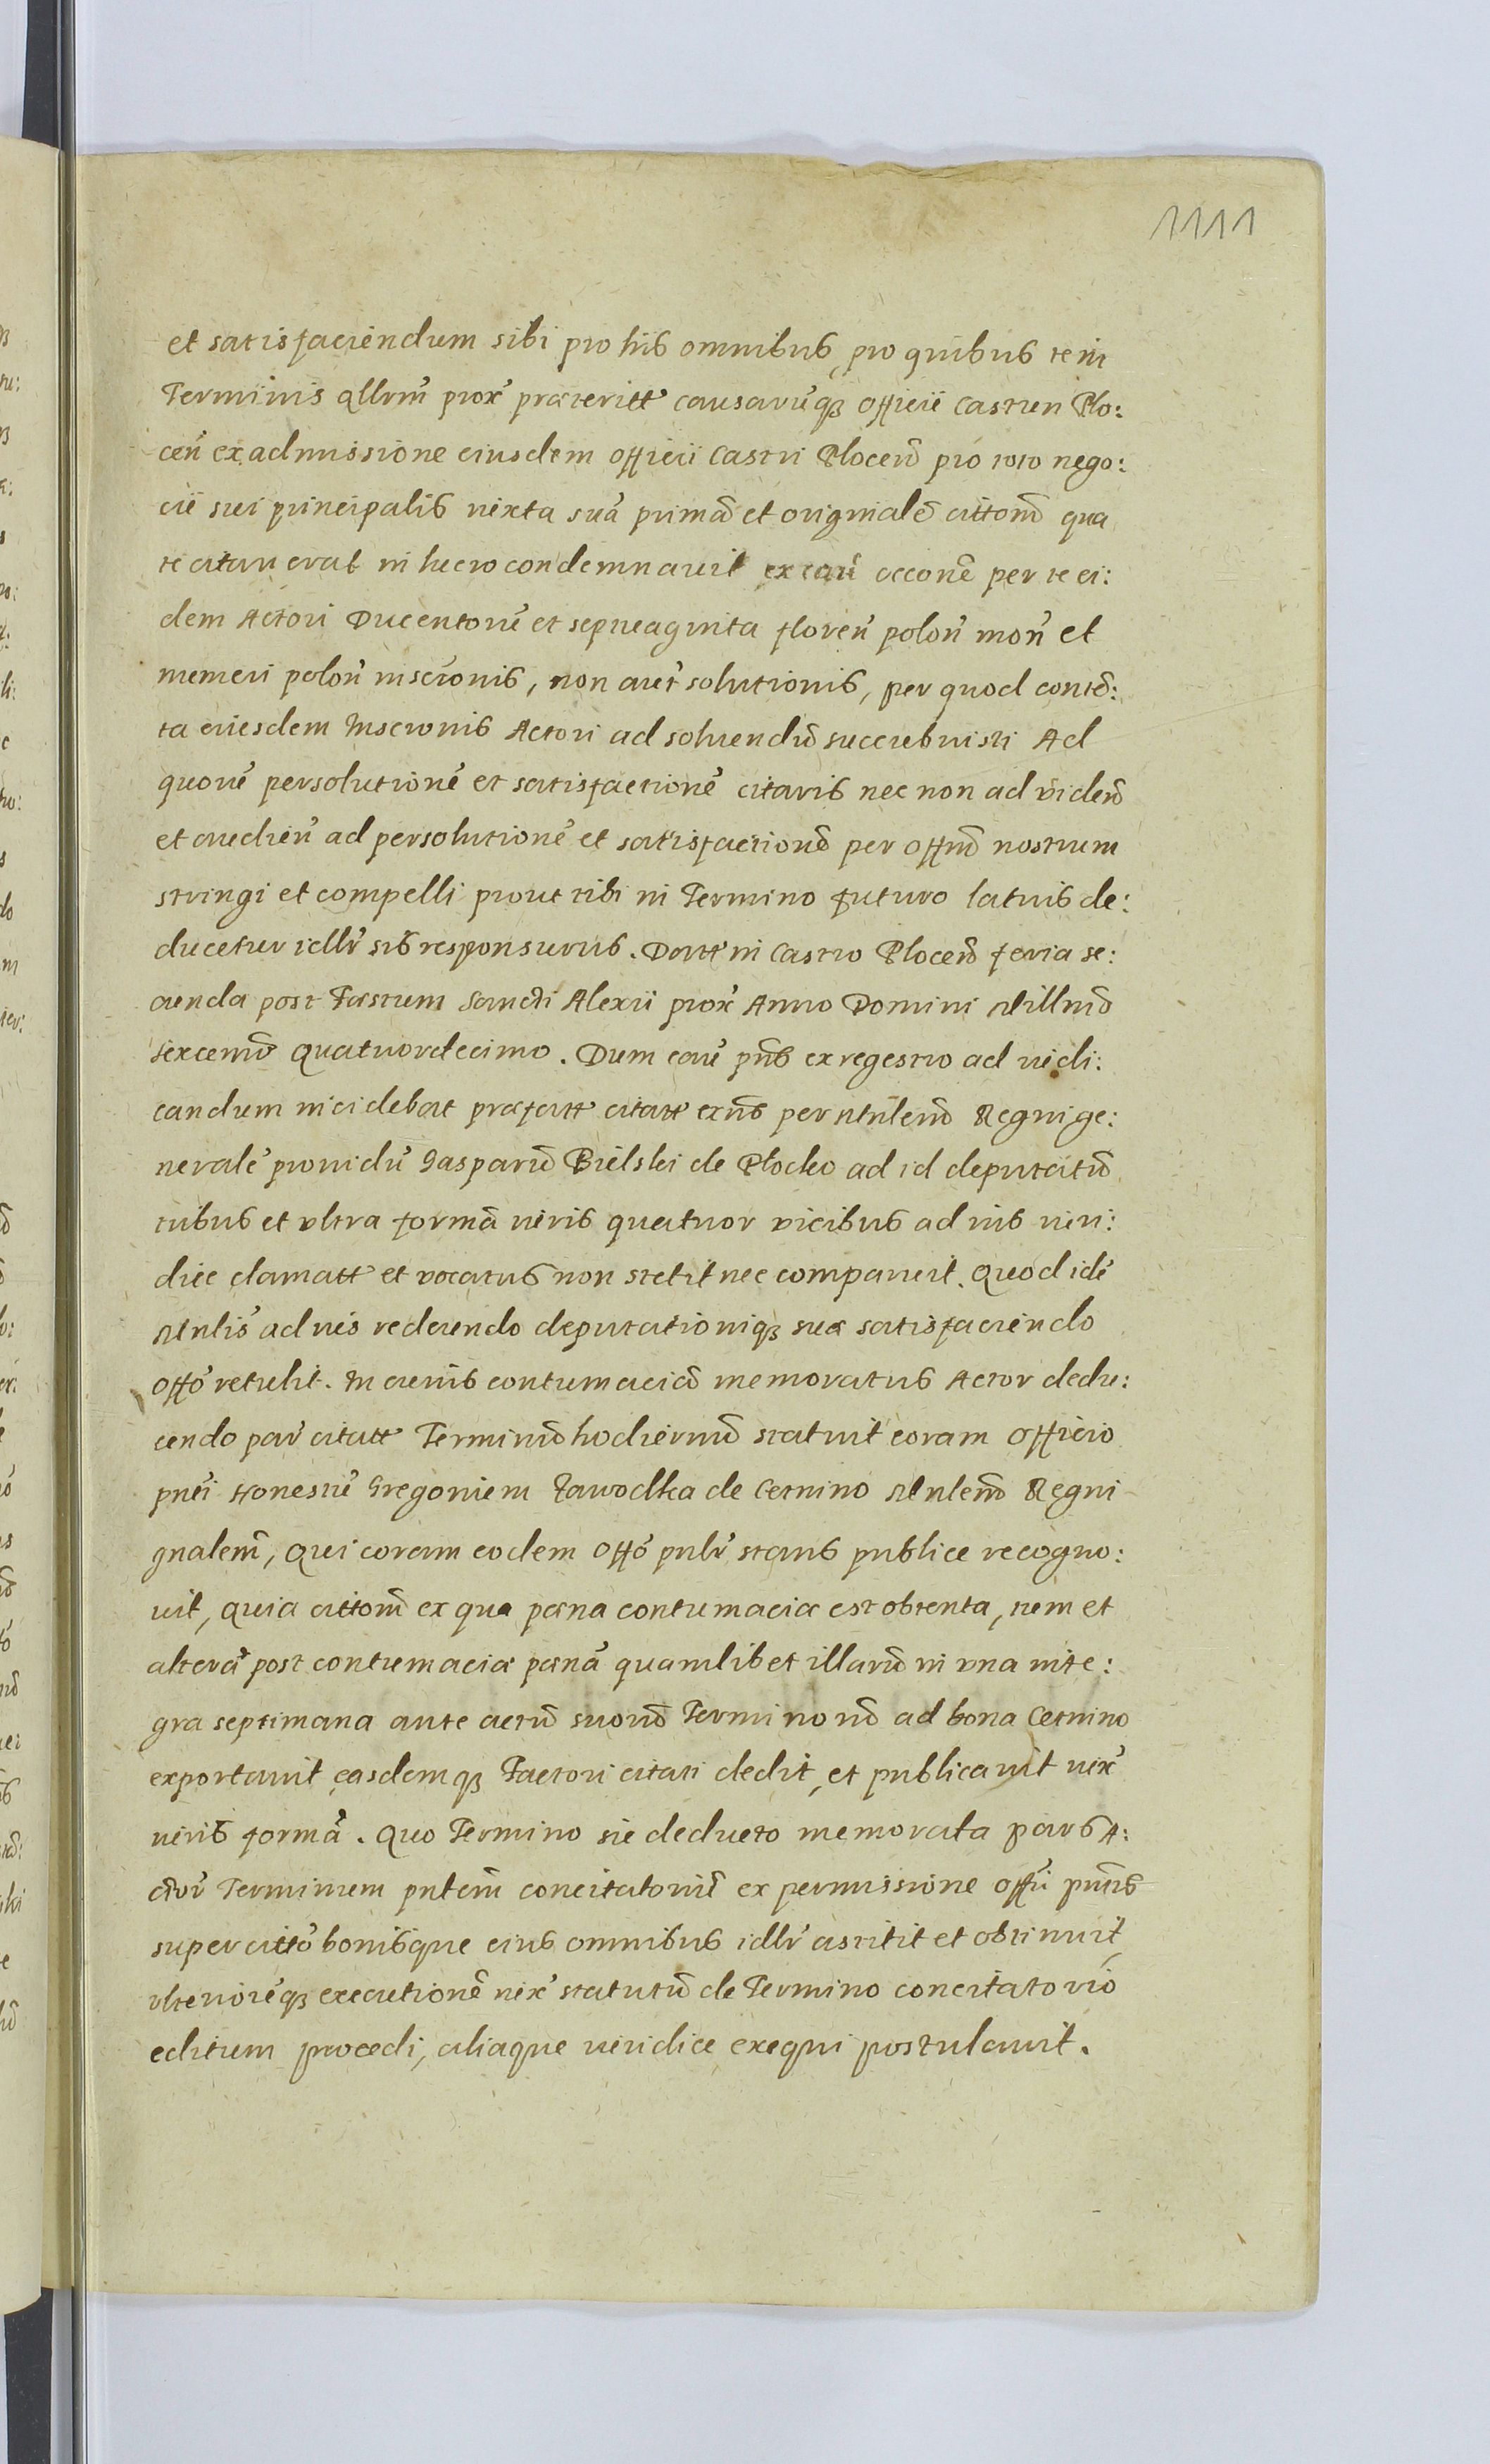 1111
et satisfaciendum sibi pro his omnibus, pro quibus te in
Terminis qllrũ prox̃ præteritt causarũq₃ Officii Castren Plo:
ceñ ex admissione eiusdem Officii Castri Plocen̄ pro toto nego:
cii sui principalis iuxta suã primã et originalẽ cittonẽ qua
te citaverat in lucro condemnavit ex rãñ occõne per te ei:
dem Actori Ducentorũ et septuaginta floreñ poloñ moñ et
numeri poloñ inscrõnis, non aur̃ solutionis, per quod contẽ:
ta eiusdem Inscrõnis Actori ad solvendũ succubuisti Ad
quorũ persolutionẽ et satisfactionẽ citaris nec non ad viden̄
et audieñ ad persolutionẽ et satisfactionẽ per Offm̃ nostrum
stringi et compelli prout tibi in Termino futuro latius de:
ducetur idlr̃ sis responsurus. Datt in Castro Plocen̄ feria se:
cunda post Fæstum Sancti Alexii prox̃ Anno Domini Millmõ
sexcentmõ Quatuordecimo. Dum cau̇ pñs ex regestro ad iudi:
candum incidebat præfatt citatt exñs per Mnlem̃ Regni ge:
neralẽ providũ Gasparũ Bielski de Płocko ad id deputatũ
tribus et vltra formã iuris quatuor vicibus ad ius iuri:
dice clamatt et vocatus non stetit nec comparuit. Quod idẽ
Mnlis ad ius redeundo deputationiq₃ suæ satisfaciendo
Offõ retulit. In cuius contumaciã memoratus Actor dedu:
cendo par̃ citatt Terminũ hodiernũ statuit coram Officio
pñti Honestũ Gregorium Zawodka de Cetnino Mnlem̃ Regni
gnalem̃, Qui coram eodem Offõ pnlr̃ stans publice recogno:
uit, Quia cittonẽ ex qua pæna contumaciæ est obtenta, tum et
alterã post contumaciæ pænã quamlibet illarũ in vna inte:
gra septimana ante actũ suorũ Terminorũ ad bona Cetnino
exportavit easdemq₃ Factori citati dedit, et publicavit iux̃
iuris formã. Quo Termino sic deducto memorata pars A:
ctor̃ Terminum pntem̃ concitatoriũ ex permissione Offii pñtis
super cittõ bonisque eius omnibus idlr̃ astitit et obtinuit
vlteriorẽq₃ executionẽ iux̃ statutũ de Termino concitatorio
editum procedi, aliaque iuridice exequi postulavit.